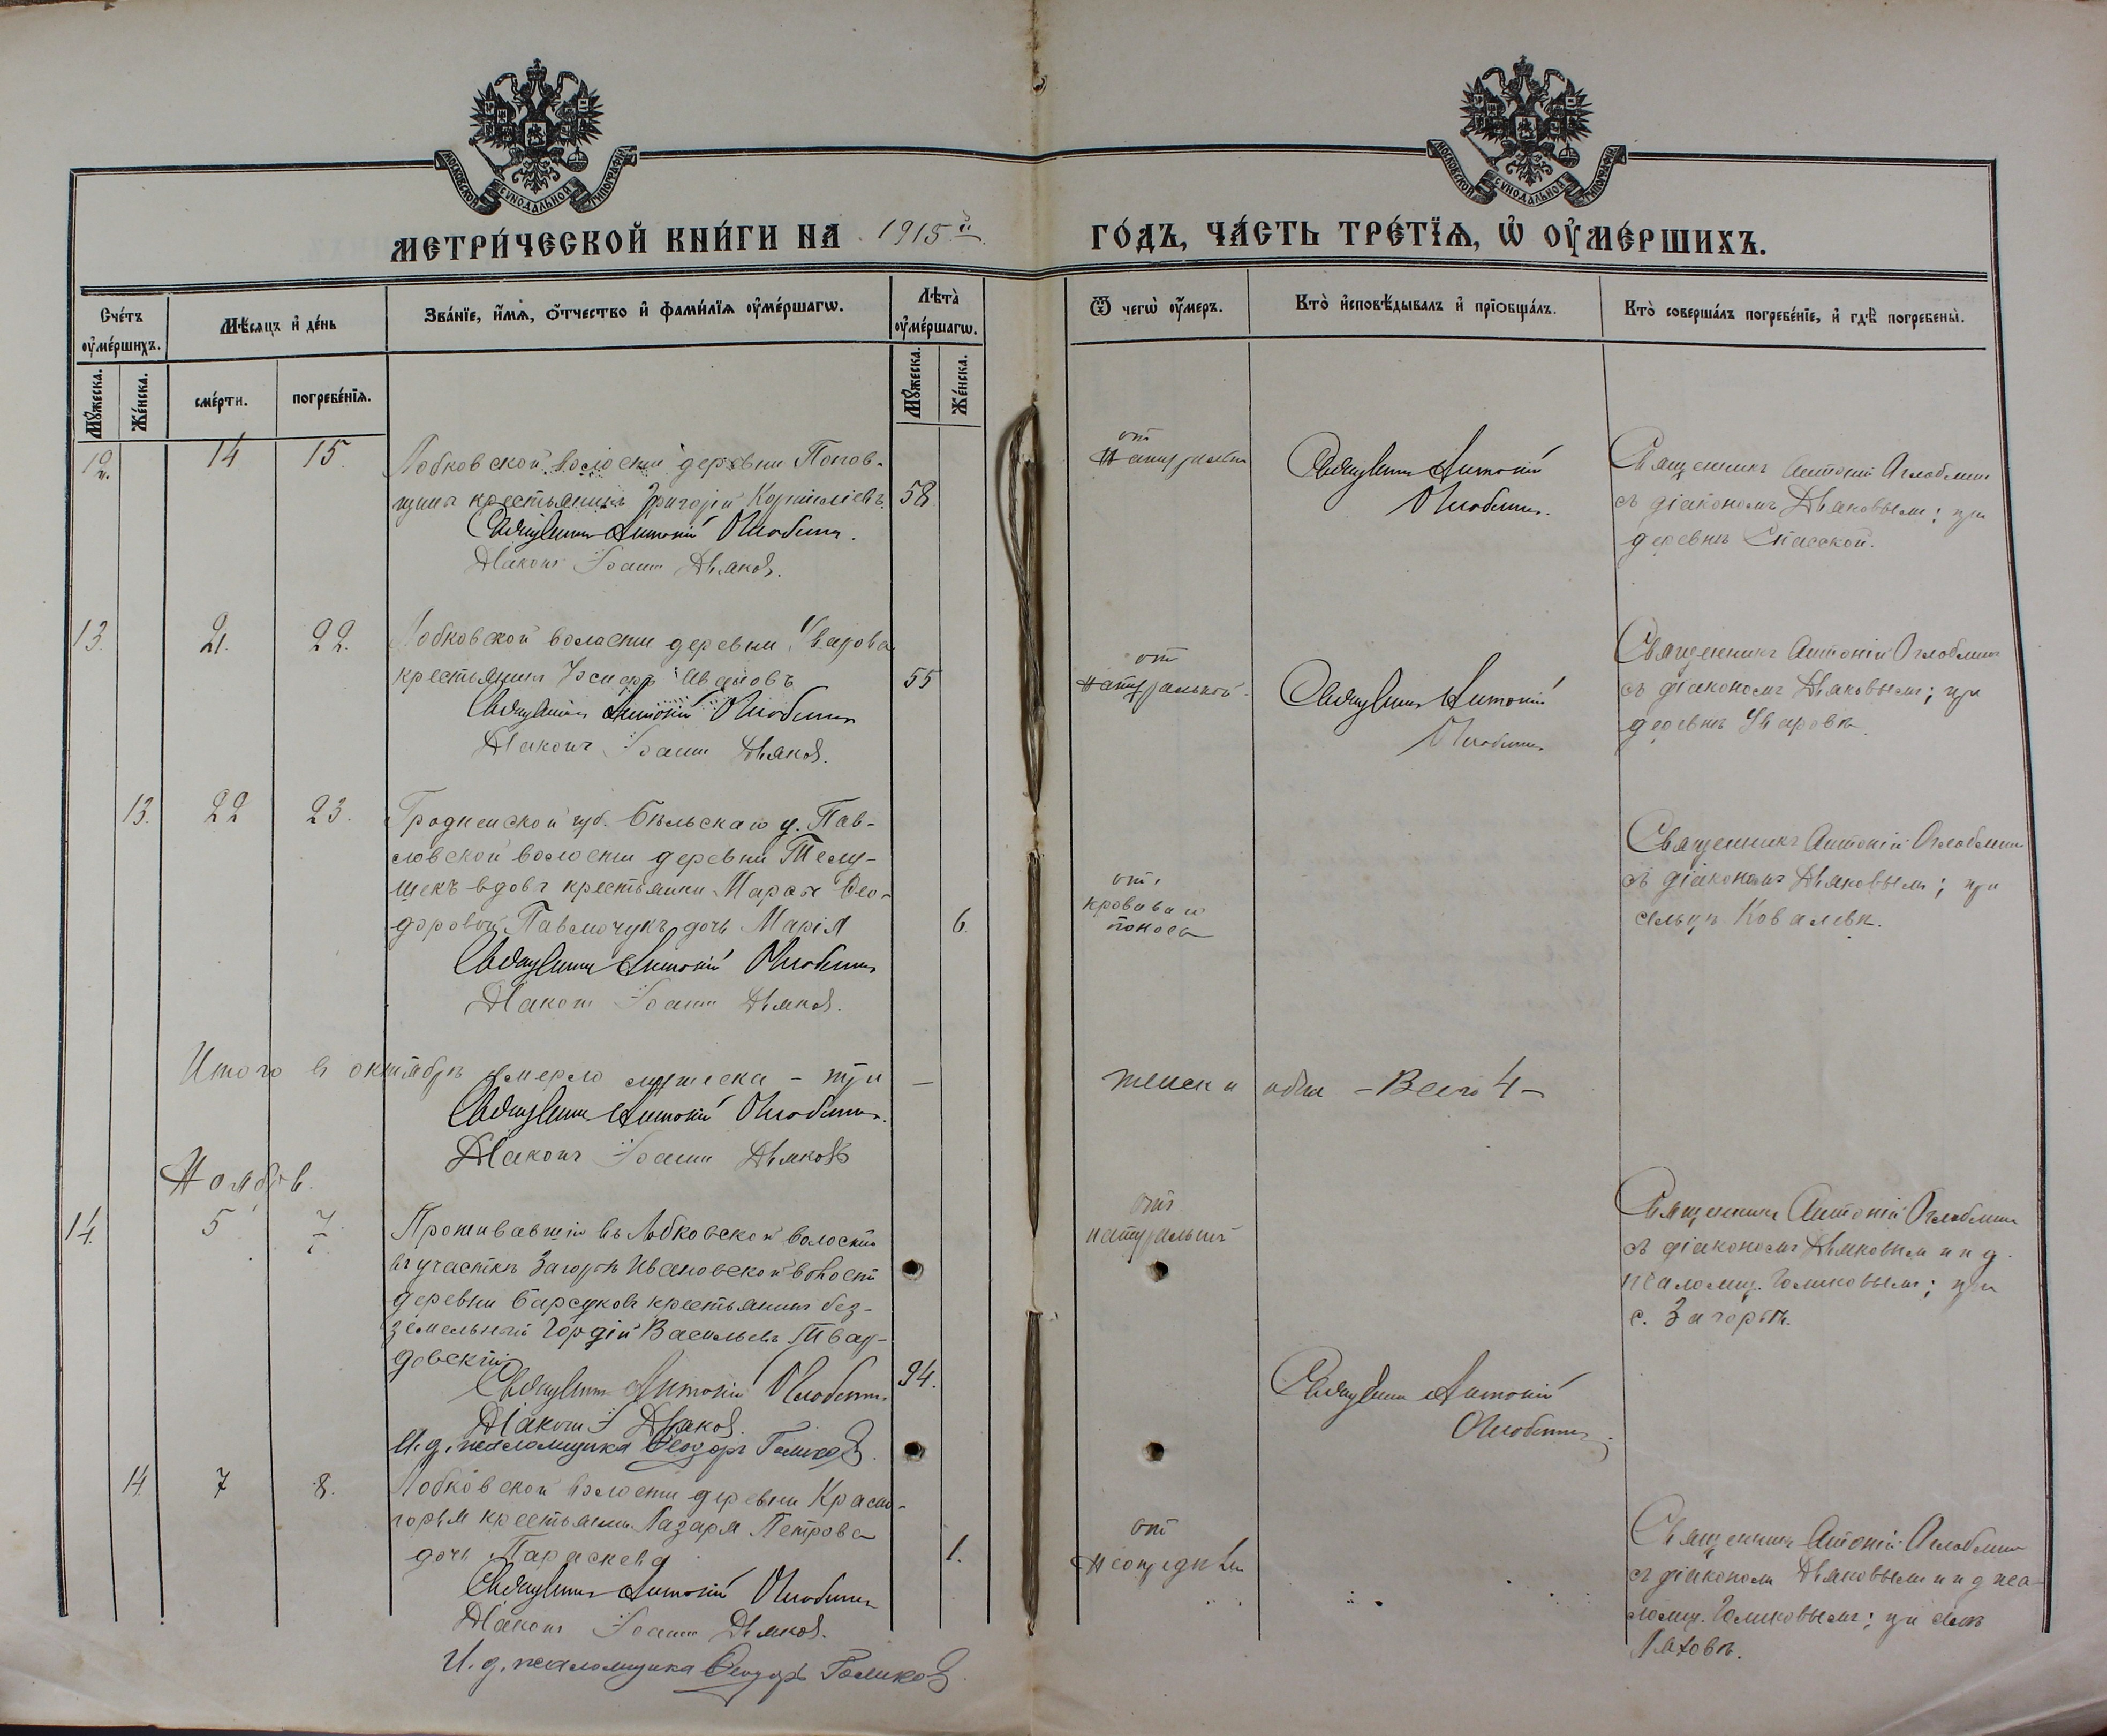 МОСКОВСКОЙ СѴНОДАЛЬНОЙ ТИПОГРАФІИ
МОСКОВСКОЙ СѴНОДАЛЬНОЙ ТИПОГРАФІИ
МЕТРИ́ЧЕСКОЙ КНИ́ГИ НА 1915 й ГО́ДЪ, ЧА́СТЬ ТРЕ́ТЇѦ, Ѡ҆ ОУ҆МЕ́РШИХЪ.
Сче́тъ оу҆ме́ршихъ.
Мѣ́сяцъ и҆ де́нь
Зва́нїе, и҆́мѧ, о҆́тчество и҆ фами́лїѧ оу҆ме́ршагѡ.
Лѣта̀ оу҆ме́ршагѡ.
Ѿ чегѡ̀ оу҆́меръ.
Кто̀ и҆сповѣ́дывалъ и҆ прїѡбща́лъ.
Кто̀ соверша́лъ погребе́нїе, и҆ гдѣ̀ погребены̀.
Мꙋ́жеска.
Же́нска.
сме́рти.
погребе́нїѧ.
Мꙋ́жеска.
Же́нска.
12. 14 15. Лобковской волости деревни Попов-
щины крестьянинъ Григорій Корниліевъ. 58
Священникъ Антоній Оглоблинъ.
Діаконъ Іоаннъ Дьяковъ.
от
Священникъ Антоній
Оглоблинъ.
Священникъ Антоній Оглоблинъ
съ діакономъ Дьяковымъ; при
деревнѣ Спасской.
13. 21. 22. Лобковской воласти деревни Уварова
крестьянинъ Ивановъ 55
Священникъ Антоній Оглоблинъ
Діаконъ Іоаннъ Дьяковъ.
от
натуральной
Священникъ Антоній
Оглоблинъ
Священникъ Антоній Оглоблинъ
съ діакономъ Дьяковымъ; при
деревнѣ Уваровѣ.
13. 22 23. Гродненской губ. Бѣльскаго у. Пав-
ловской волости деревни Телу-
шекъ вдовы крестьянки Марѳы Ѳео-
доровой Павлючукъ дочь Марія 6.
Священникъ Антоній Оглоблинъ
Діаконъ Іоаннъ Дьяковъ.
отъ
кроваваго
поноса
Священникъ Антоній Оглоблинъ
съ діакономъ Дьяковымъ; при
сельцѣ Ковалевѣ.
Итого въ октябрѣ умерло мужеска - три — женска одна - Всего 4 -
Священникъ Антоній Оглоблинъ.
Діаконъ Іоаннъ Дьяковъ
Ноябрь.
14. 5 7. Проживавшій въ Лобковской волости
въ участкѣ Загорье Ивановской волости
деревни Барсуковъ крестьянинъ без-
земельный Гордій Васильевъ Твар-
довскій 94.
Священникъ Антоній Оглоблинъ
Діаконъ І Дьяковъ.
И. д. псаломщика Ѳеодоръ Голиковъ.
отъ
натуральной
Священникъ Антоній
Оглоблинъ
Священникъ Антоній Оглоблинъ
съ діакономъ Дьяковымъ и и д.
псаломщ. Голиковымъ; при
с. Загорьѣ.
14. 7 8. Лобковской волости деревни Красно-
горья крестьянина Лазаря Петрова
дочь Параскева 1.
Священникъ Антоній Оглоблинъ
Діаконъ Іоаннъ Дьяковъ.
И. д. псаломщика Ѳеодоръ Голиковъ.
от
Священникъ Антоній Оглоблинъ
съ діакономъ Дьяковымъ и и д пса-
ломщ. Голиковымъ; при селѣ
Ляховѣ.